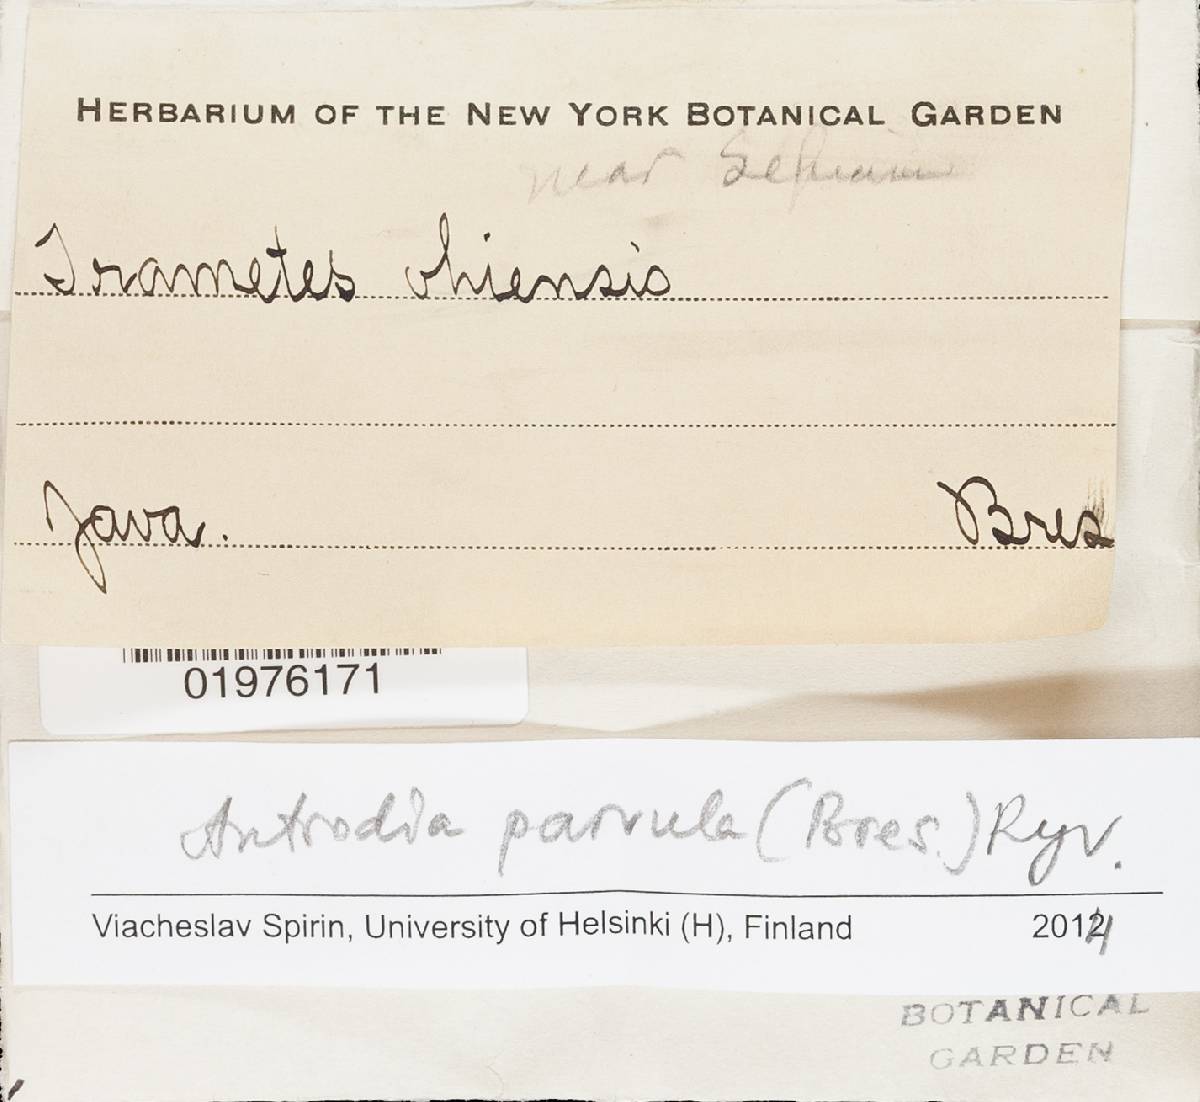 HERBARIUM OF THE NEW YORK BOTANICAL GARDEN
near
Trametes ohiensis
Java. Bres
01976171
Antrodia parvula (Bres.) Ryv.
Viacheslav Spirin, University of Helsinki (H), Finland 2014
BOTANICAL
GARDEN